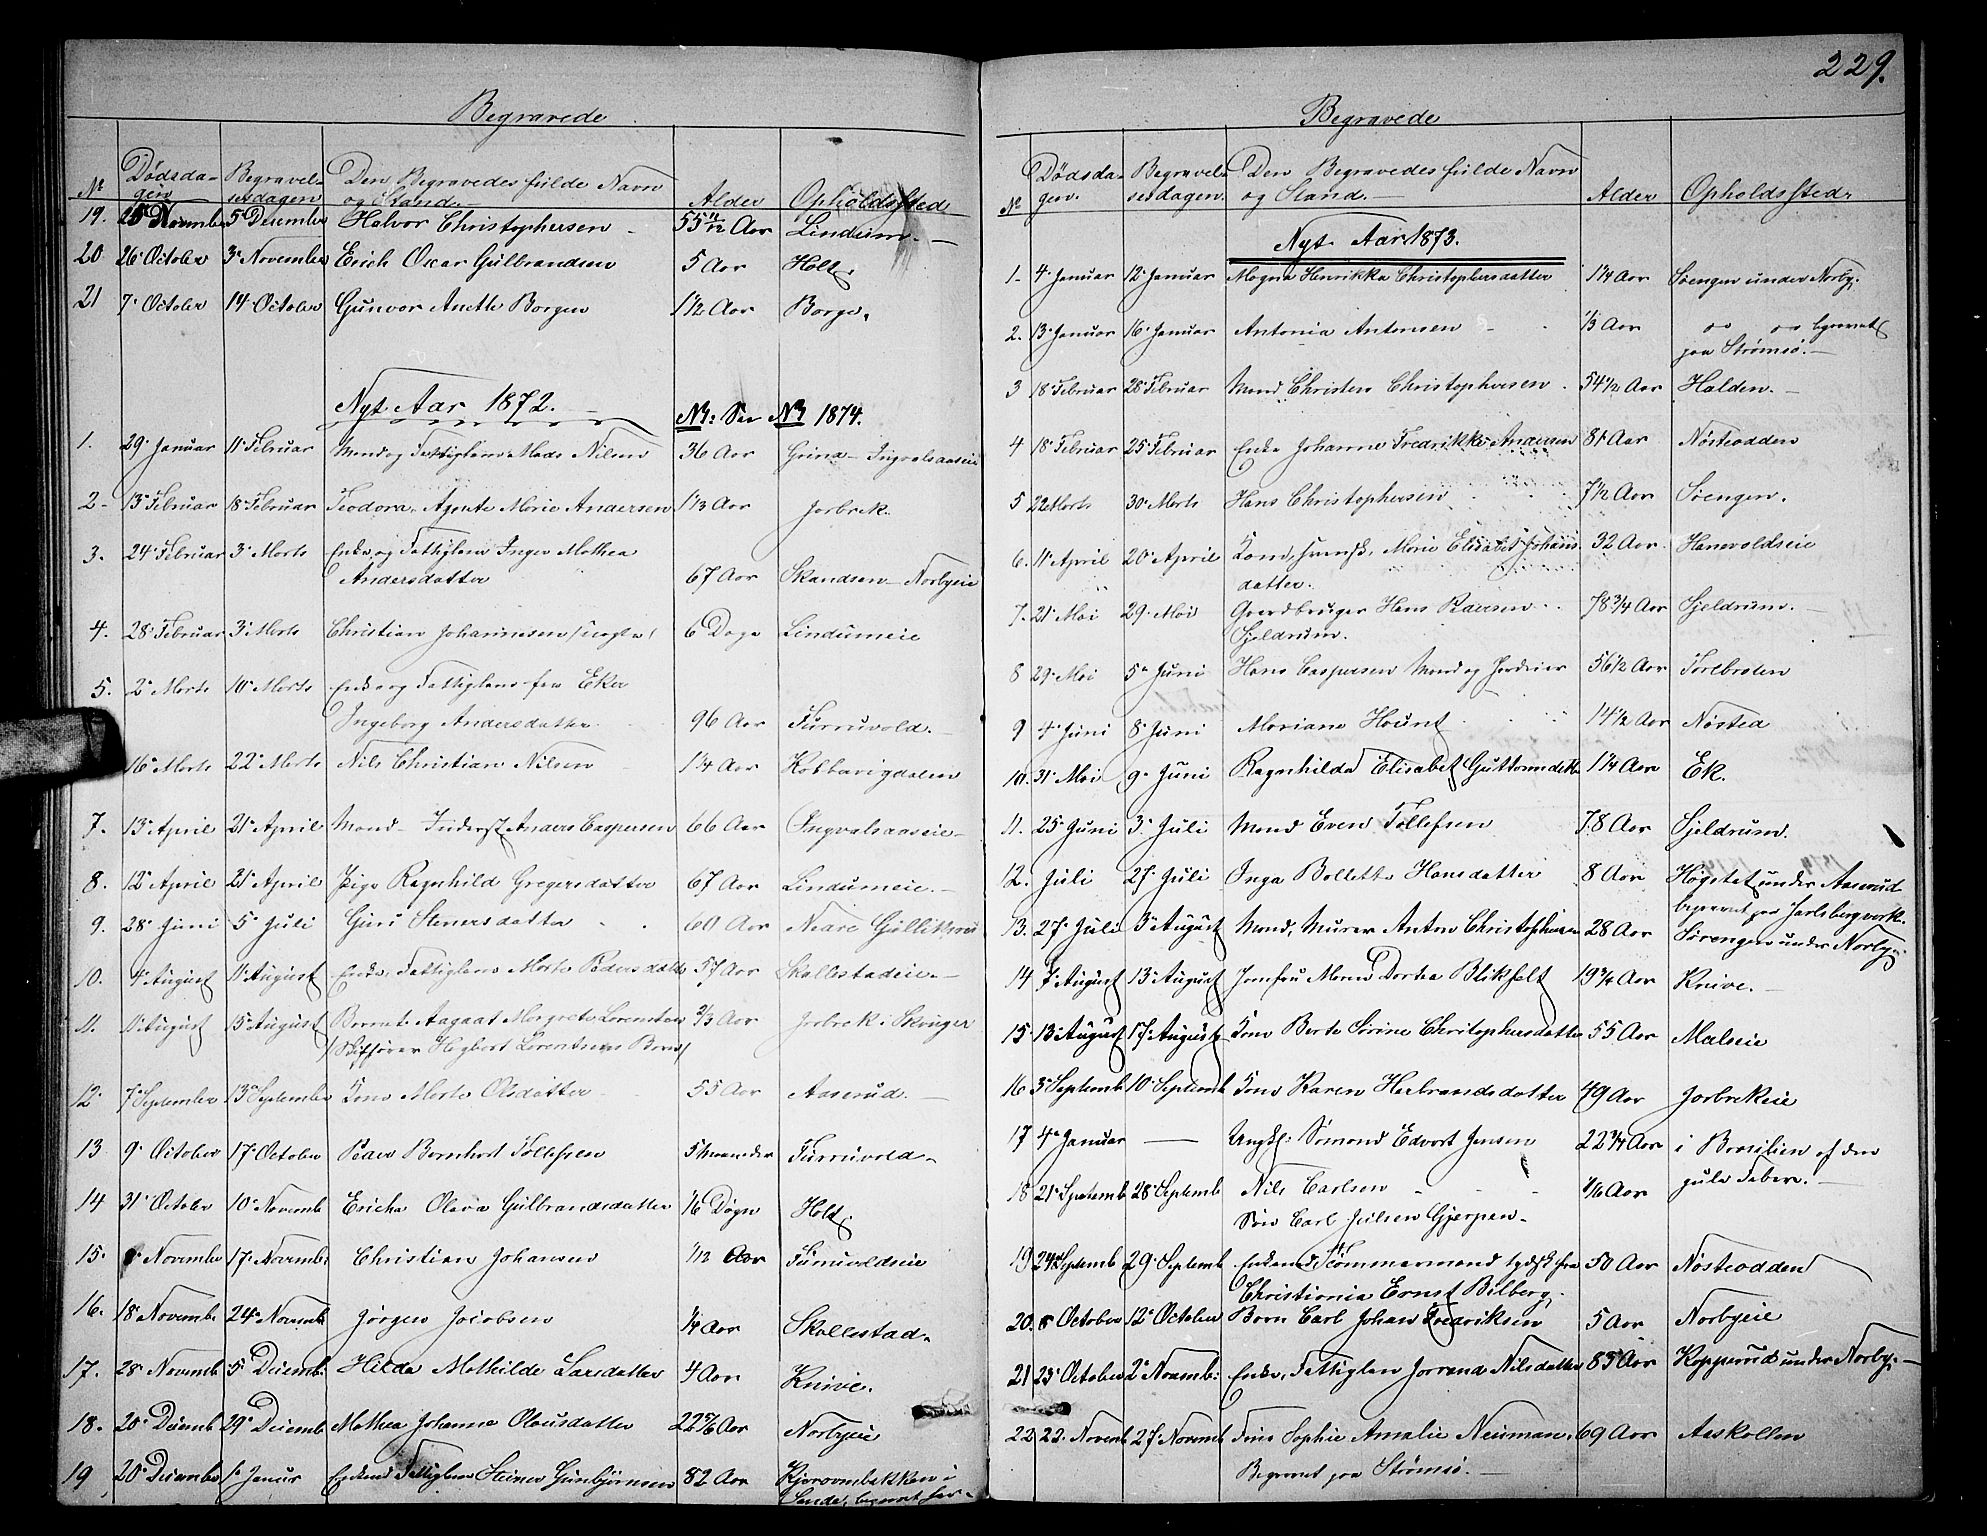 229.
Begravede
Nr Dødsdagen Begravelsesdagen Den Begravedes fulde Navn og Stand. Alder Opholdssted
19. 25 Novembr 5 Decembr Halvor Christophersen 55 11/12 Aar Lindum.
20 26 October 3 November Erich Oscar Gulbrandsen 5 Aar Holt.
21 7 October 14 October Gunvor Anette Borgen 1 1/2 Aar Borge.
Nyt Aar 1872. NB: See NB 1874.
1. 29 Januar 11 Februar Mand og Fattiglem Mads Nilsen 36 Aar Grina Ingvalsaaseie
2. 13 Februar 18 Februar Teodora Agnte Marie Andersen 1 1/3 Aar Jorbrek
3. 24 Februar 3 Marts Enke og Fattiglem Inger Mathea
Andersdatter 67 Aar Skandsen Norbyeie
4. 28 Februar 3 Marts Christian Johannesen /uægte/ 6 Dage Lindumeie
5. 2 Marts 10 Marts Enke og Fattiglem fra Eker
Ingeborg Andersdatter 96 Aar Furruvold.
16 Marts 22 Marts Nils Christian Nilsen 1/4 Aar Kobbervigdalen
7. 13 April 21 April Mand Inderst Anders Caspersen 66 Aar Ingvalsaaseie
8. 12 April 21 April Pige Ragnhild Gregersdatter 67 Aar Lindumeie.
9. 28 Juni 5 Juli Guri Stenersdatter 60 Aar Neare
10. 4 August 11 August Enke, Fattiglem Marte Pedersdatter 57 Aar Skallestadeie.
11. 11 August 15 August Barnet Aagaat Margrete Lorentsen 2/3 Aar Jorbrek i Skouger
/Skibfører Hegbart Lorentsens Barn/
12 7 September 13 September Kone Marte Olsdatter 55 Aar Aaserud.
13 9 October 17 October Peder Bernhard Tollefsen 5 Maaneder Furruvold.
14 31 October 10 Novemb Ericha Olava Gulbrandsdatter 1/6 Døgn Holt.
15. Novembr 17 Novemb: Christian Johansen 1/12 Aar Furruvoldeie
16. 18 Novemb 24 Novemb Jørgen Jacobsen 1/4 Aar Skallestad.
17. 28 Novemb 5 Decemb: Hilda Mathilde Larsdatter 4 Aar Knive.
18. 20 Decemb 29 Decemb Mathea Johanne Olausdatter 22 5/6 Aar Norbyeie
19 20 Decembr 1 Januar Enkemd Fattiglem Steiner Gunbjørnsen 82 Aar Kjærraambakken i
Sande, begravet her
Begravede
Nr Dødsdagen. Begravelsesdagen. Den Begravedes fulde Navn og Stand. Alder Opholdssted
Nyt Aar 1873.
1. 4 Januar 12 Januar Magna Henrikka Christophersdatter 1 1/4 Aar Søengen under Norby.
2. 13 Januar 16 Januar Antonia Antonsen 1/3 Aar begravet
paa Strømsø.
3 18 Februar 28 Februar Mand Christen Christophersen 54 1/2 Aar Halden.
4 18 Februar 25 Februar Enke Johanne Fredrikke Andersen 81 Aar Nøsteodden
5 22 Marts 30 Marts Hans Christophersen 7 1/2 Aar Søengen.
6. 11 April 20 April Kone, svensk, Marie Elisabet Johans
datter. 32 Aar Hanevoldseie
7. 21 Mai 29 Mai Gaardbruger Hans Raersen
Sjeldrum. 78 3/4 Aar Sjeldrum.
8 29 Mai 5 Juni Hans Caspersen Mand og Jordeier 56 1/2 Aar Torlbroten
9 4 Juni 8 Juni Mariane Haunst 14 1/2 Aar Nøsted
10. 31 Mai 9 Juni Ragnhilda Elisabet Guttormdatter 1 1/4 Aar Ek.
11. 25 Juni 3 Juli Mand Even Tollefsen 78 Aar Sjeldrum.
12. Juli 27 Juli Inga Bollette Hansdatter 8 Aar Høgstet under Aaserud
begravet paa Jarlsbergverk.
13. 27 Juli 3 August Mand, Murer Anton Christophersen 28 Aar Sørengen under Norby
14 7 August 13 August Jomfru Maren Dortea Blikfelt 19 3/4 Aar Knive.
15 13 August 17 August Kone Berte Sirine Christophersdatter 55 Aar Malseie
16 3 Septemb 10 Septemb Kone Karen Herbrandsdatter 49 Aar Jorbrekeie
17 4 Januar — Ungkl: Simond Edvart Jensen 22 3/4 Aar i Brasilien af den
gule Feber.
18 21 Septemb 28 Septemb Nils Carlsen Aar
Søn Carl Julsen Gjerpen
19 24 Septemb 29 Septemb Enkemd Tømmermand tydsk fra
Christiania Ernst Bilberg. 50 Aar Nøsteodden
20. 6 October 12 October Barn Carl Johan Fredriksen 5 Aar Norbyeie
21 25 October 2 Novemb: Enke, Fattiglem Jorrand Nilsdatter 85 Aar Kopperud under Norby.
22 22 Novemb 27 Novemb Frue Sophie Amalie Neuman 69 Aar Aaskollen
Begravet paa Strømsø.